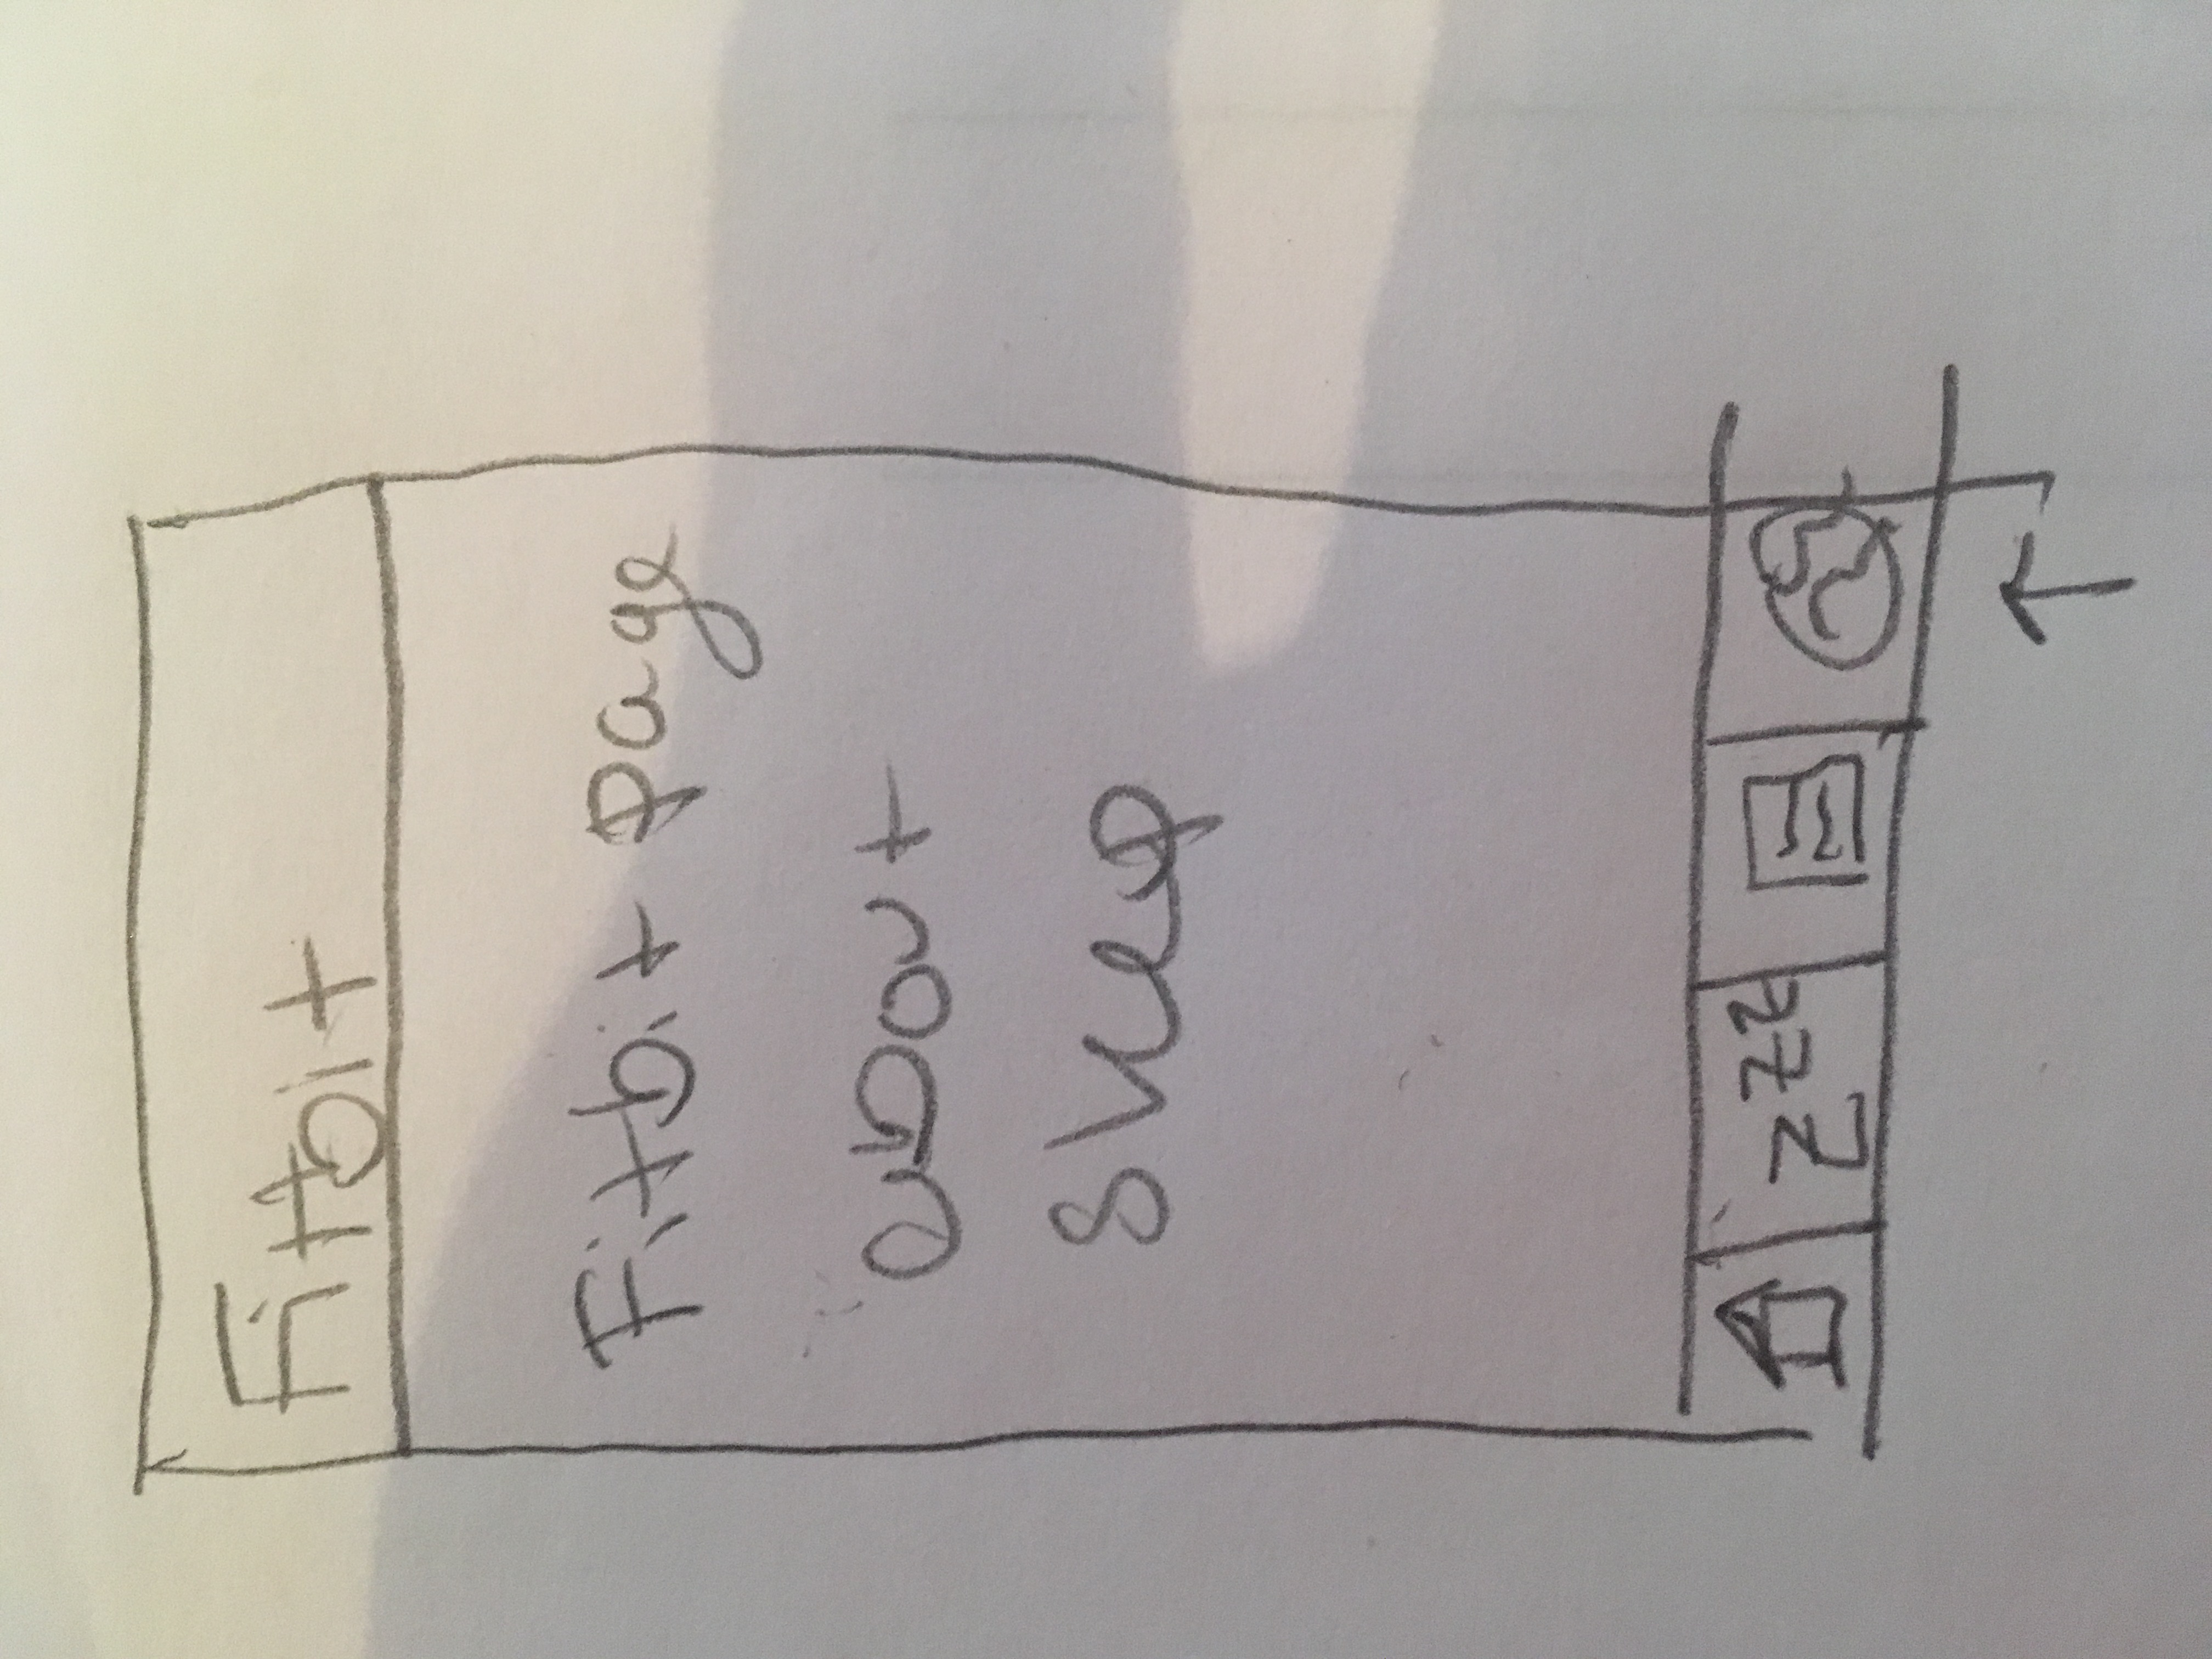 Fitbit
Fitbit page
about
sleep
zzz